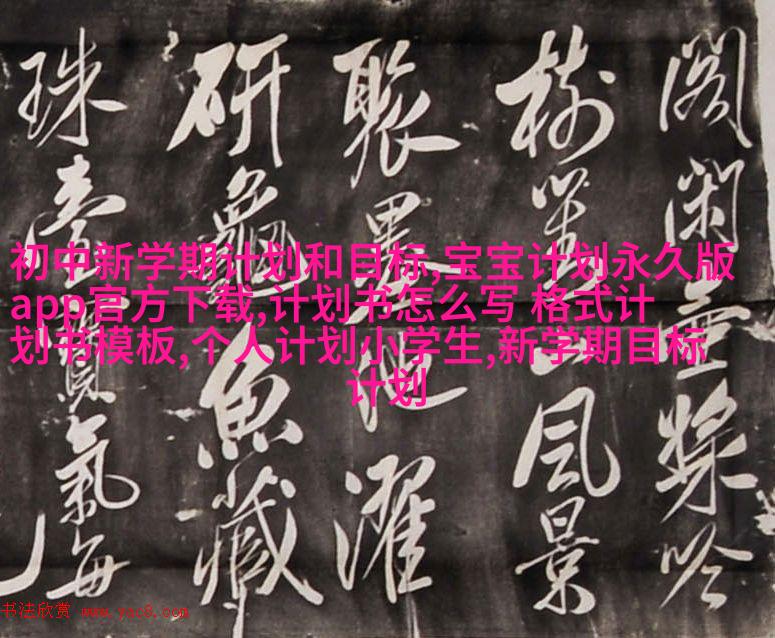 閑
樹 風景
聚墨池濯
研 魚藏
珠 氣每
初中新学期计划和目标,宝宝计划永久版
app官方下载,计划书怎么写 格式计
划书模板,个人计划小学生,新学期目标
计划
书法欣赏 www.yac8.com